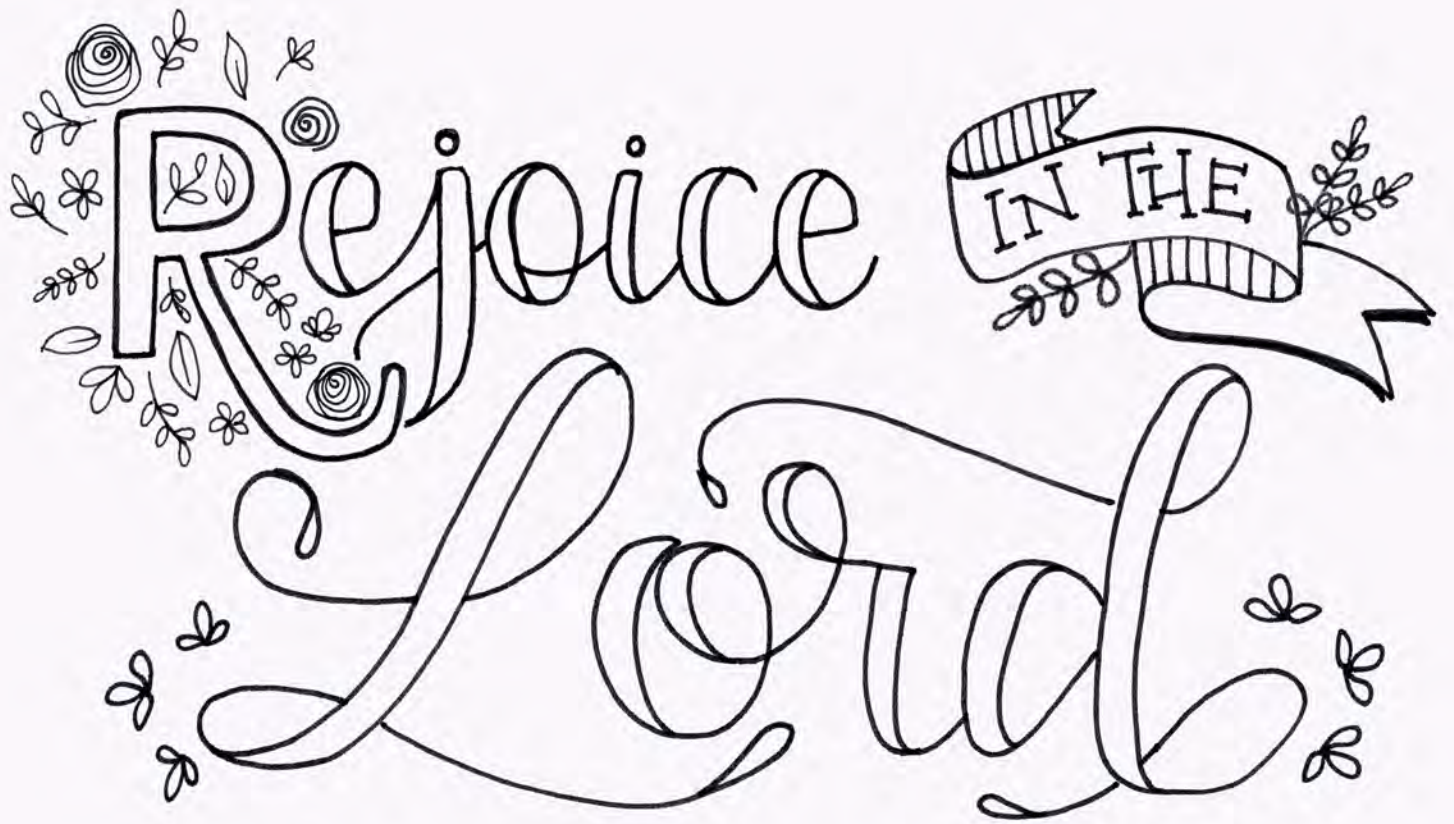 Rejoice IN THE
Lord